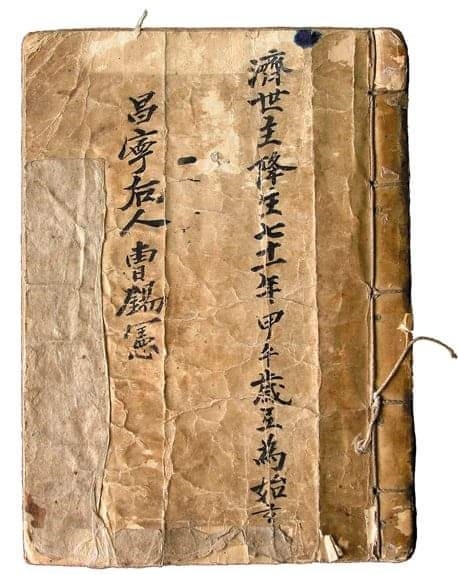 濟世主降生七十一年甲午歲至為始
昌寧后人曺錫憲